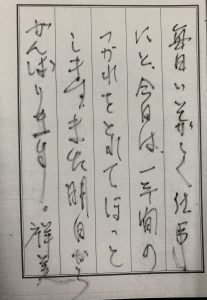 毎日いそがしく仕事
今日は一年間の
つかれをとれてほっと
します。また明日から
がんばります。